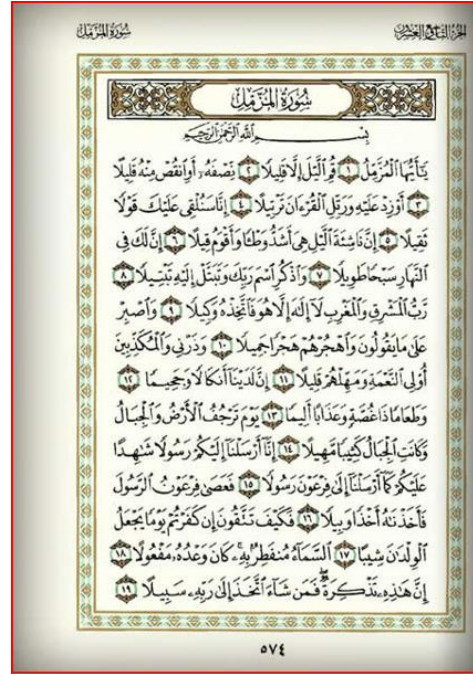 سُورَةُ المُزَّمِّل
الجُزءُ التَّاسِعُ وَالعِشْرُونَ
سُورَةُ المُزَّمِّلِ
بِسْمِ ٱللَّهِ ٱلرَّحْمَٰنِ ٱلرَّحِيمِ
يَٰٓأَيُّهَا ٱلْمُزَّمِّلُ ١ قُمِ ٱلَّيْلَ إِلَّا قَلِيلًا ٢ نِّصْفَهُۥٓ أَوِ ٱنقُصْ مِنْهُ قَلِيلًا
٣ أَوْ زِدْ عَلَيْهِ وَرَتِّلِ ٱلْقُرْءَانَ تَرْتِيلًا ٤ إِنَّا سَنُلْقِى عَلَيْكَ قَوْلًا
ثَقِيلًا ٥ إِنَّ نَاشِئَةَ ٱلَّيْلِ هِىَ أَشَدُّ وَطْـًٔا وَأَقْوَمُ قِيلًا ٦ إِنَّ لَكَ فِى
ٱلنَّهَارِ سَبْحًا طَوِيلًا ٧ وَٱذْكُرِ ٱسْمَ رَبِّكَ وَتَبَتَّلْ إِلَيْهِ تَبْتِيلًا ٨
رَّبُّ ٱلْمَشْرِقِ وَٱلْمَغْرِبِ لَآ إِلَٰهَ إِلَّا هُوَ فَٱتَّخِذْهُ وَكِيلًا ٩ وَٱصْبِرْ
عَلَىٰ مَا يَقُولُونَ وَٱهْجُرْهُمْ هَجْرًا جَمِيلًا ١٠ وَذَرْنِى وَٱلْمُكَذِّبِينَ
أُو۟لِى ٱلنَّعْمَةِ وَمَهِّلْهُمْ قَلِيلًا ١١ إِنَّ لَدَيْنَآ أَنكَالًا وَجَحِيمًا ١٢
وَطَعَامًا ذَا غُصَّةٍ وَعَذَابًا أَلِيمًا ١٣ يَوْمَ تَرْجُفُ ٱلْأَرْضُ وَٱلْجِبَالُ
وَكَانَتِ ٱلْجِبَالُ كَثِيبًا مَّهِيلًا ١٤ إِنَّآ أَرْسَلْنَآ إِلَيْكُمْ رَسُولًا شَٰهِدًا
عَلَيْكُمْ كَمَآ أَرْسَلْنَآ إِلَىٰ فِرْعَوْنَ رَسُولًا ١٥ فَعَصَىٰ فِرْعَوْنُ ٱلرَّسُولَ
فَأَخَذْنَٰهُ أَخْذًا وَبِيلًا ١٦ فَكَيْفَ تَتَّقُونَ إِن كَفَرْتُمْ يَوْمًا يَجْعَلُ
ٱلْوِلْدَٰنَ شِيبًا ١٧ ٱلسَّمَآءُ مُنفَطِرٌۢ بِهِۦ ۚ كَانَ وَعْدُهُۥ مَفْعُولًا ١٨
إِنَّ هَٰذِهِۦ تَذْكِرَةٌ ۖ فَمَن شَآءَ ٱتَّخَذَ إِلَىٰ رَبِّهِۦ سَبِيلًا ١٩
٥٧٤